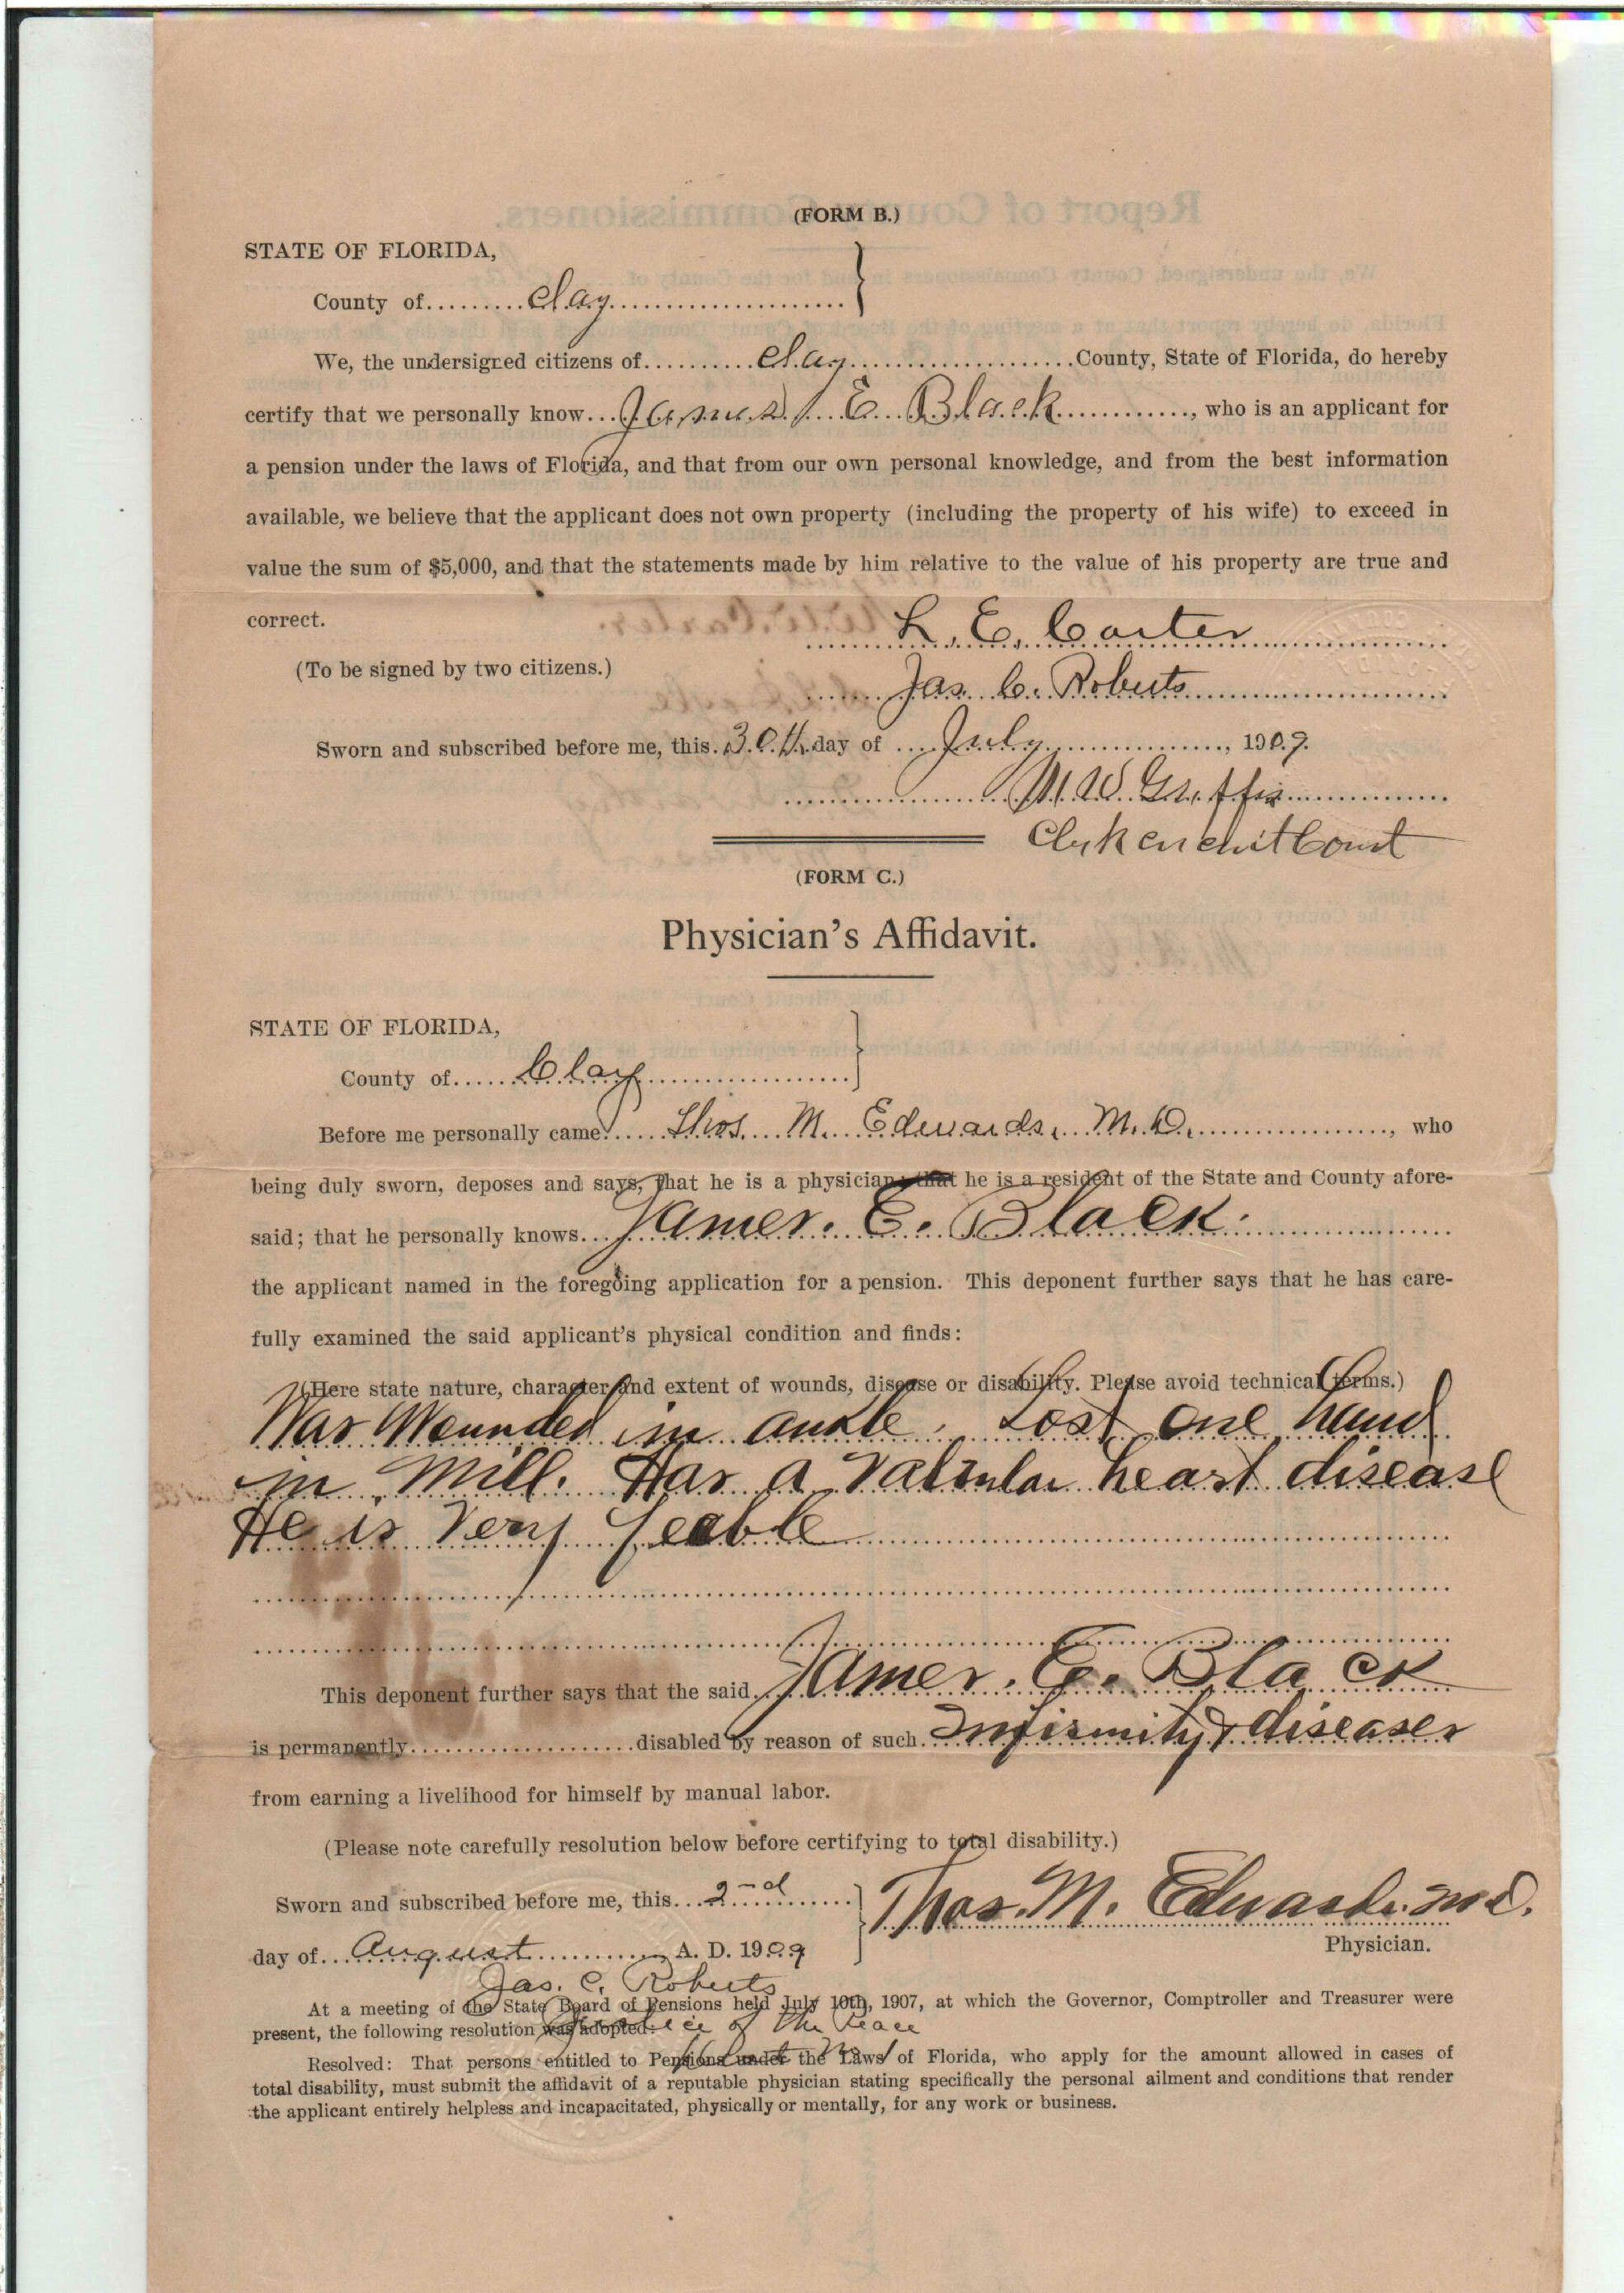 (FORM B.)
STATE OF FLORIDA,
County of Clay
We, the undersigned citizens of Clay County, State of Florida, do hereby
certify that we personally know James E Black, who is an applicant for
a pension under the laws of Florida, and that from our own personal knowledge, and from the best information
available, we believe that the applicant does not own property (including the property of his wife) to exceed in
value the sum of $5,000, and that the statements made by him relative to the value of his property are true and
correct.
L. E. Carter
(To be signed by two citizens.)
Jas. C. Roberts
Sworn and subscribed before me, this 30th day of July, 1909.
M. W. Griffis
Clerk Circuit Court
(FORM C.)
Physician's Affidavit.
STATE OF FLORIDA,
County of Clay
Before me personally came Thos. M. Edwards, M.D., who
being duly sworn, deposes and says, that he is a physician; that he is a resident of the State and County afore-
said; that he personally knows James. E. Black.
the applicant named in the foregoing application for a pension. This deponent further says that he has care-
fully examined the said applicant's physical condition and finds:
(Here state nature, character and extent of wounds, disease or disability. Please avoid technical terms.)
Was Wounded in ankle. Lost one hand
in Mill. Has a Valvular heart disease
He is Very feeble
This deponent further says that the said James. E. Black
is permanently disabled by reason of such Infirmity & diseases
from earning a livelihood for himself by manual labor.
(Please note carefully resolution below before certifying to total disability.)
Sworn and subscribed before me, this 2nd
Thos. M. Edwards. M D.
day of August A. D. 1909
Physician.
Jas. C. Roberts
At a meeting of the State Board of Pensions held July 10th, 1907, at which the Governor, Comptroller and Treasurer were
present, the following resolution was adopted:
Justice of the Peace
Resolved: That persons entitled to Pensions under the Laws of Florida, who apply for the amount allowed in cases of
total disability, must submit the affidavit of a reputable physician stating specifically the personal ailment and conditions that render
the applicant entirely helpless and incapacitated, physically or mentally, for any work or business.